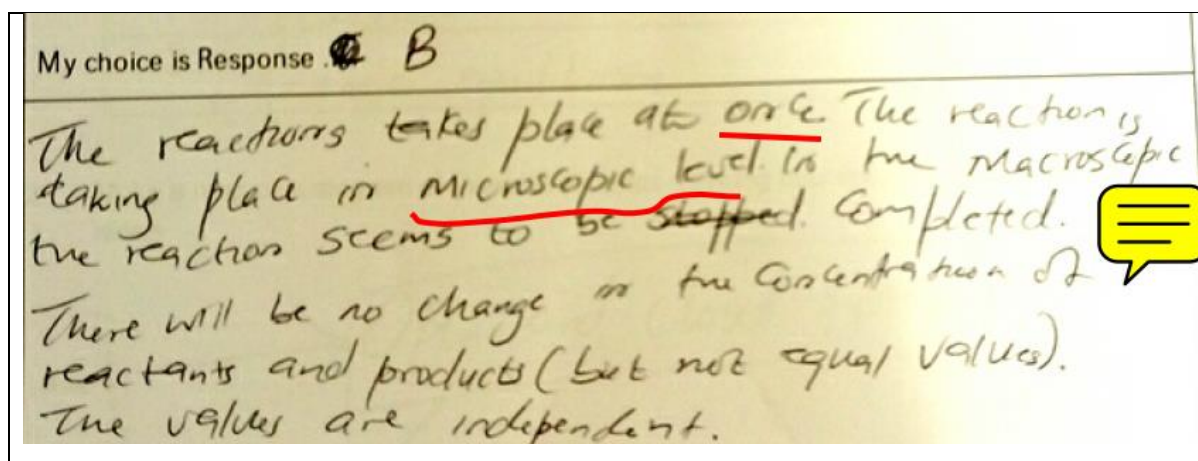 My choice is Response . B
The reactions takes place at once. The reaction is
taking place in Microscopic level. in the Macroscopic
the reaction seems to be stopped. Completed.
There will be no change in the Concentration of
reactants and products (but not equal values).
The values are independent.